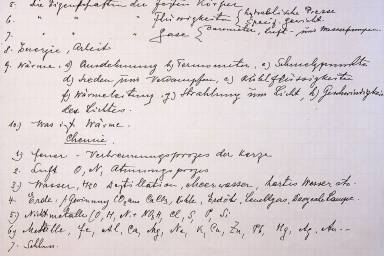 5. Die Eigenschaften der festen Körper
6. " " " Flüssigkeiten { hydraulische Presse
spezif. Gewicht
7. " " " Gase { Barometer, Luft- und Wasserpumpen
8. Energie, Arbeit
9. Wärme. a) Ausdehnung b) Termometer. c) Schmelzpunkte
d) Sieden und Verdampfen, e) Kühlflüssigkeiten
f) Wärmeleitung, g) Strahlung und Licht, h) Geschwindigkeit
des Lichtes
10.) Was ist Wärme.
Chemie.
1) Feuer - Verbrennungsprozes der Kerze
2. Luft O, N, Atmungsprozes
3) Wasser, H2O Destillation, Meerwasser, hartes Wasser etc.
4. Erde, Gewinnung CO2 aus Kalk, Kohle, Erdöl, Leuchtgas,
5) Nichtmetalle (O, H, N + NH3, Cl, S, P, Si
6) Metalle, Fe, Al, Ca, Mg, Na, K, Cu, Zn, Pb, Hg, Ag, Au --
7. Schluss.